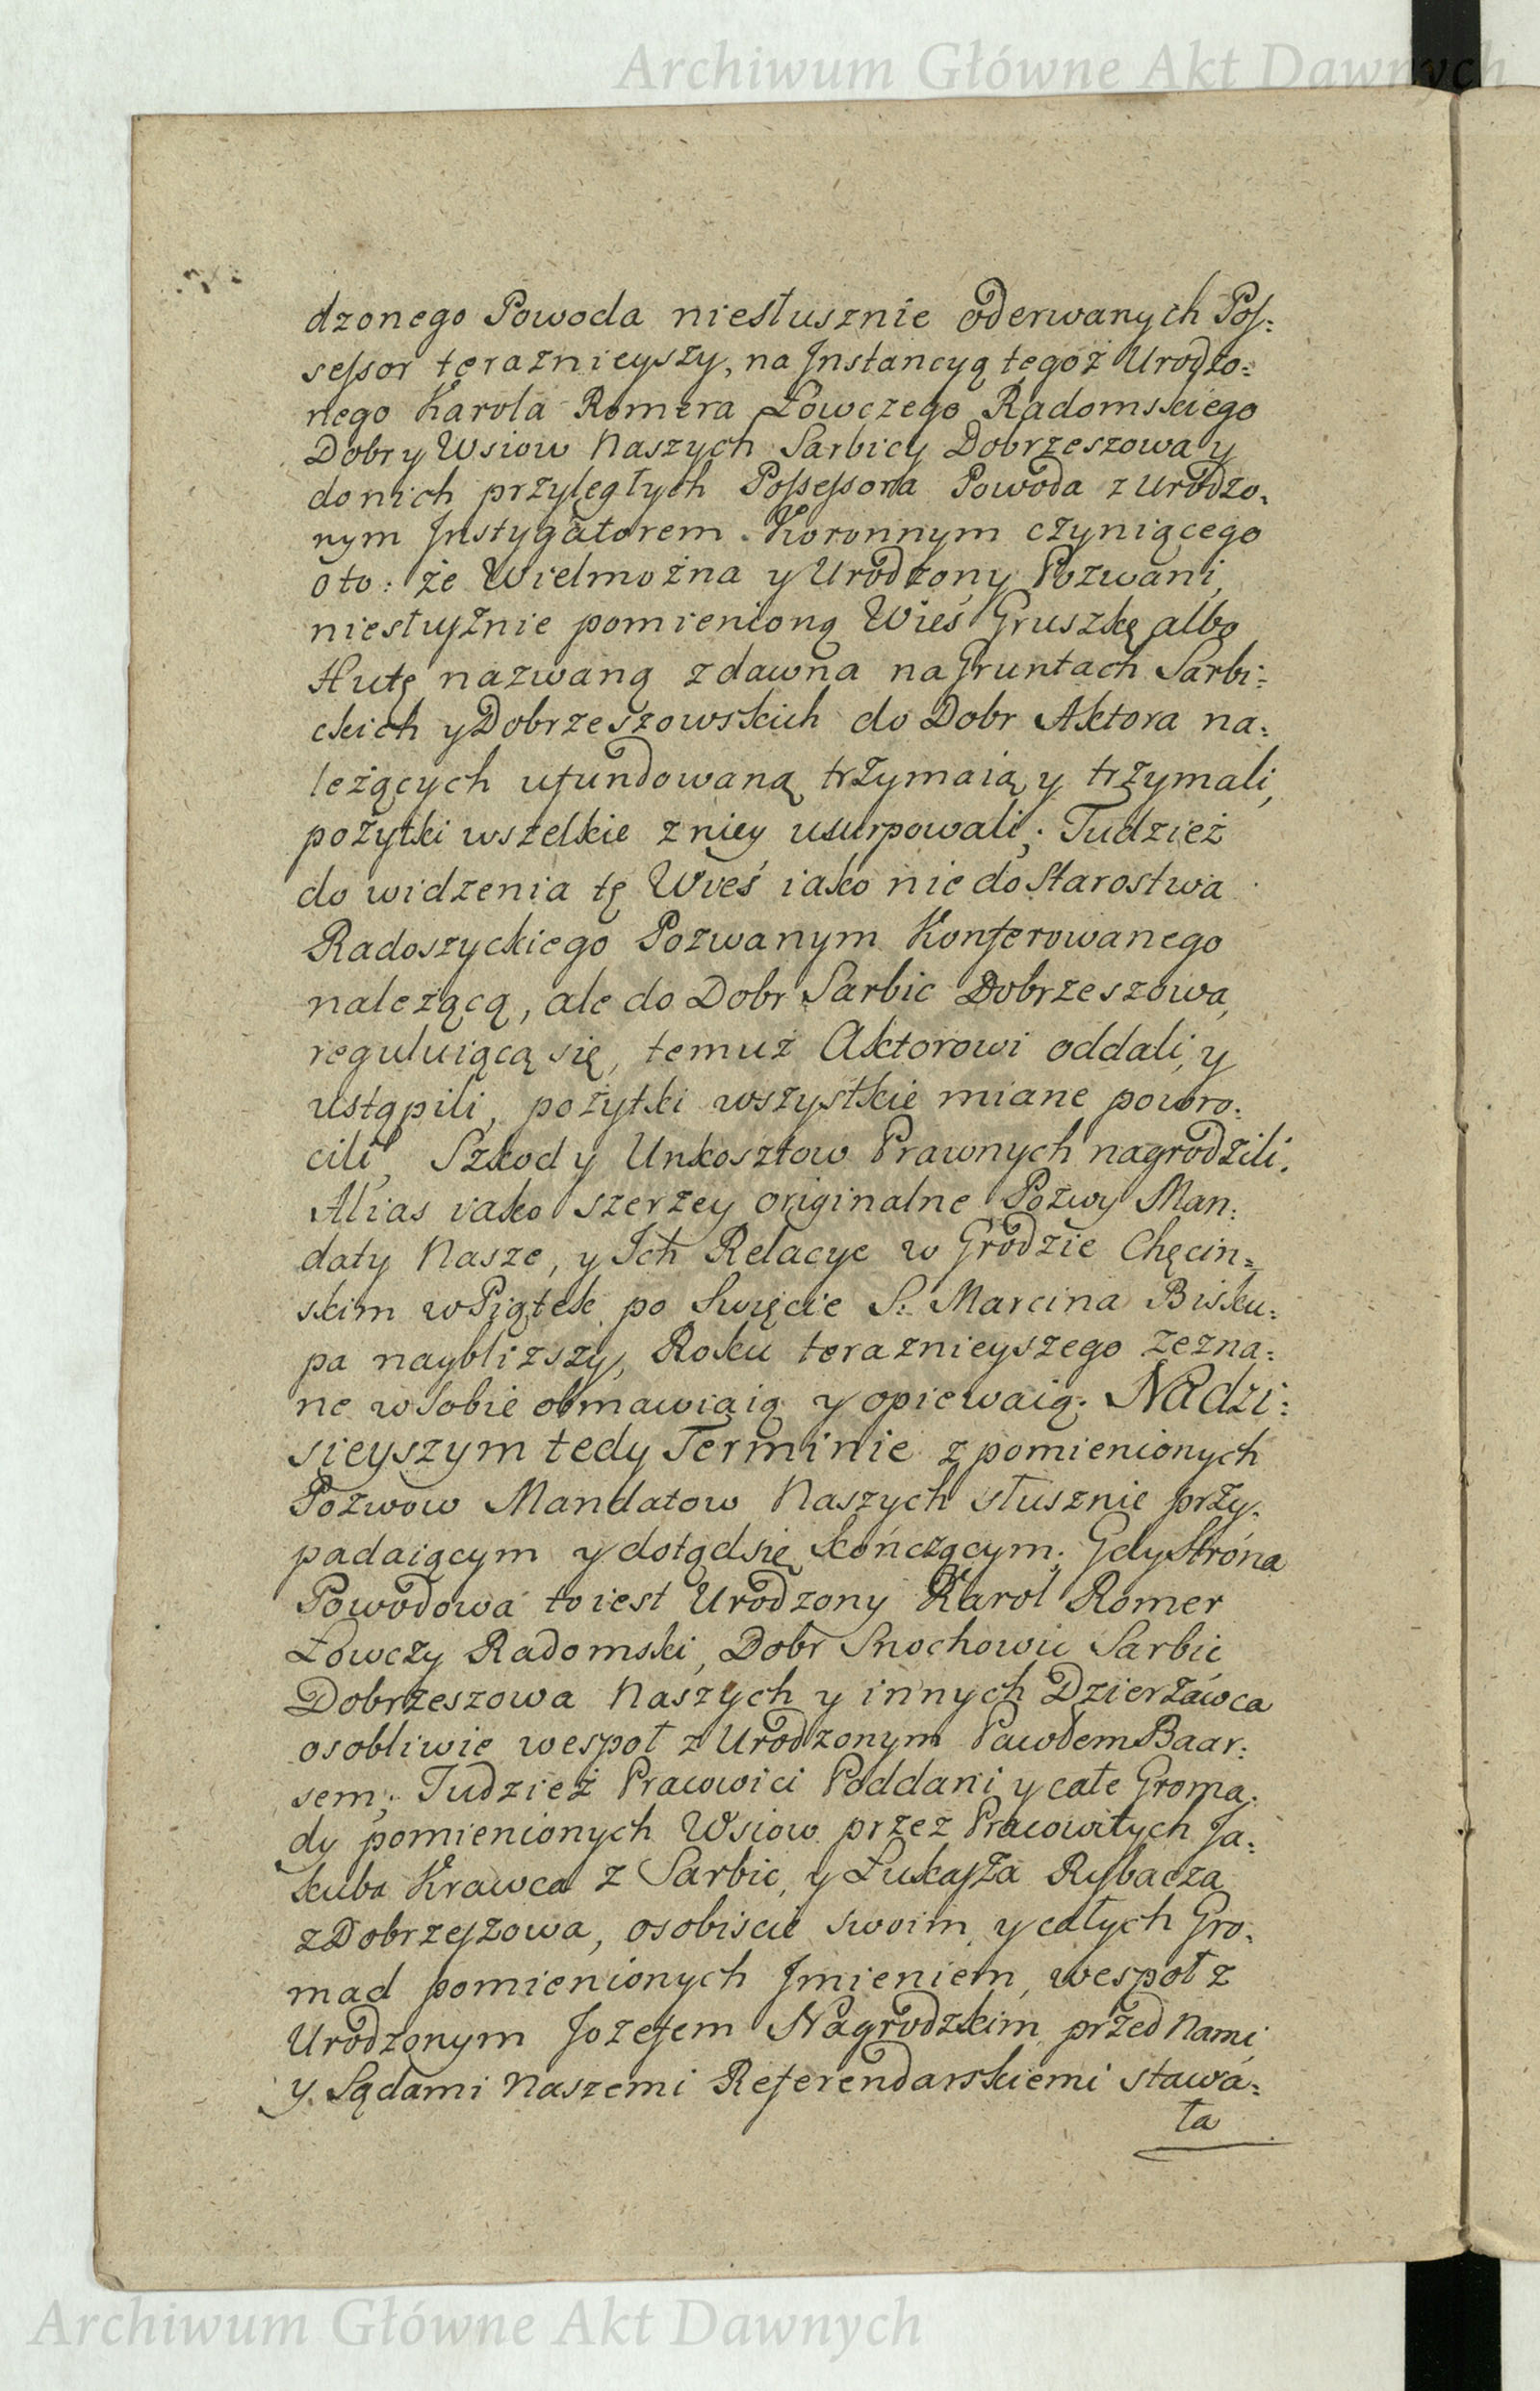 Archiwum Główne Akt Dawnych
dzonego Powoda niesłusznie oderwanych Pos:
sessor teraznieyszy, na Jnstancyą tegoż Urodzo:
nego Karola Romera Łowczego Radomskiego
Dobr y Wsiow Naszych Sarbicy Dobrzeszowa y
do nich przyległych Possessora Powoda z Urodzo:
nym Jnstygatorem Koronnym czyniącego
oto: że Wielmożna y Urodzony Pozwani,
niesłusznie pomienioną Wieś Gruszkę albo
Hutę nazwaną zdawna na Gruntach Sarbi:
ckich y Dobrzeszowskich do Dobr Aktora na:
leżących ufundowaną trzymaią y trzymali,
pożytki wszelkie z niey usurpowali; Tudzież
do widzenia tę Wieś iako nie do Starostwa
Radoszyckiego Pozwanym Konferowanego
należącą, ale do Dobr Sarbic Dobrzeszowa,
reguluiącą się, temuż Aktorowi oddali, y
ustąpili, pożytki wszystkie miane powro:
cili, Szkod y Unkosztow Prawnych nagrodzili,
Alias iako szerzey originalne Pozwy Man:
daty Nasze, y Ich Relacye w Grodzie Chęcin:
skim w Piątek po Swięcie S: Marcina Bisku:
pa nayblizszy, Roku teraznieyszego zezna:
ne w sobie obmawiaią y opiewaią. NA dzi:
sieyszym tedy Terminie z pomienionych
Pozwow Mandatow Naszych słusznie przy:
padaiącym y dotąd się kończącym; Gdy Strona
Powodowa to iest Urodzony Karol Romer
Łowczy Radomski, Dobr Snochowic Sarbic
Dobrzeszowa Naszych y innych Dzierżawca
osobliwie wespoł z Urodzonym Pawłem Baar:
sem; Tudzież Pracowici Poddani y całe Groma:
dy pomienionych Wsiow przez Pracowitych Ja:
kuba Krawca z Sarbic, y Łukasza Rybacza
z Dobrzeszowa, osobiscie swoim y całych Gro:
mad pomienionych Jmieniem, wespoł z
Urodzonym Jozefem Nagrodzkim przed Nami
y Sądami Naszemi Referendarskiemi stawa:
ła
Archiwum Główne Akt Dawnych